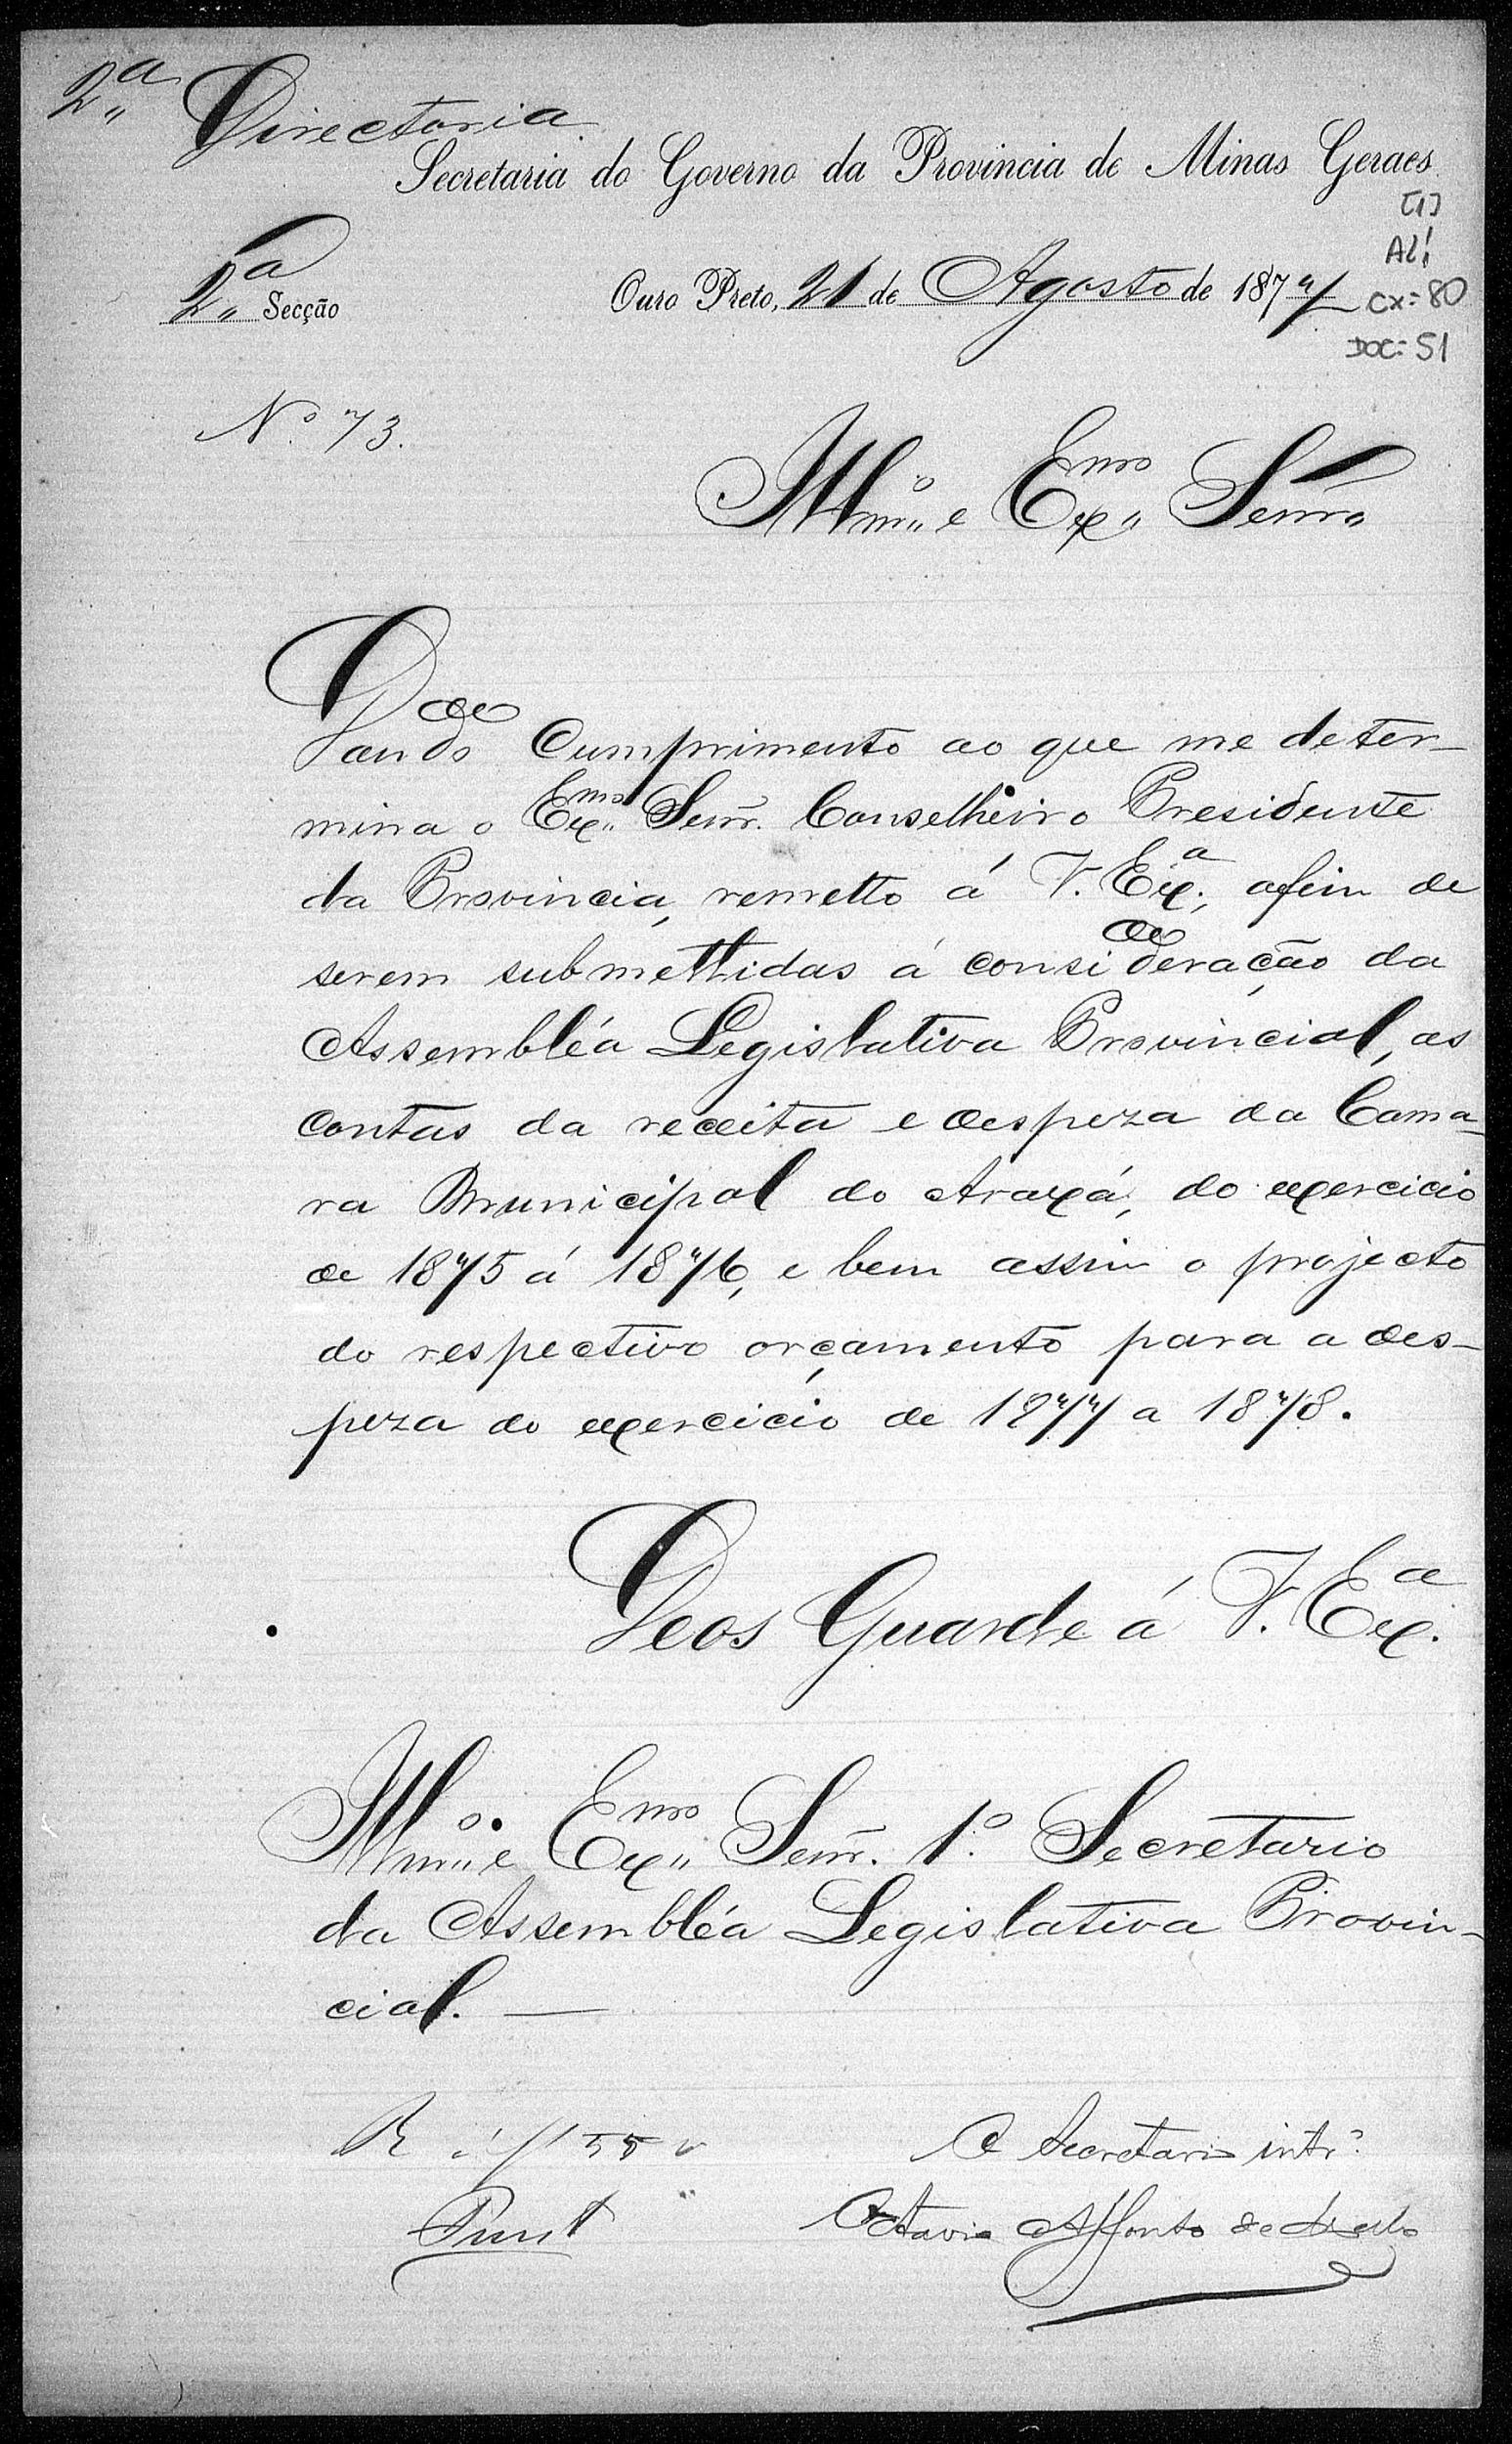 2.ª Directoria
Secretaria do Governo da Provincia de Minas Geraes
[1]
AL!
2.ª Secção
Ouro Preto, 21 de Agosto de 1877
CX=80
DOC=51
N.º 73.
Illm.º e Exmº Senr.
Dando Cumprimento ao que me deter-
mina o Exmº Senr. Conselheiro Presidente
da Provincia, remetto á V. Exª, afim de
serem submettidas á consideração da
Assembléa Legislativa Provincial, as
contas da receita e despeza da Cama-
ra Municipal do Araxá, do exercicio
de 1875 á 1876, e bem assim o projecto
do respectivo orçamento para a des-
peza do exercicio de 1877 a 1878.
Deos Guarde á V. Exª
Illm.º e Exmº Senr. 1.º Secretario
da Assembléa Legislativa Provin-
cial.
R á f 55 v
O Secretario intr.º
Octavio Affonso de Mello